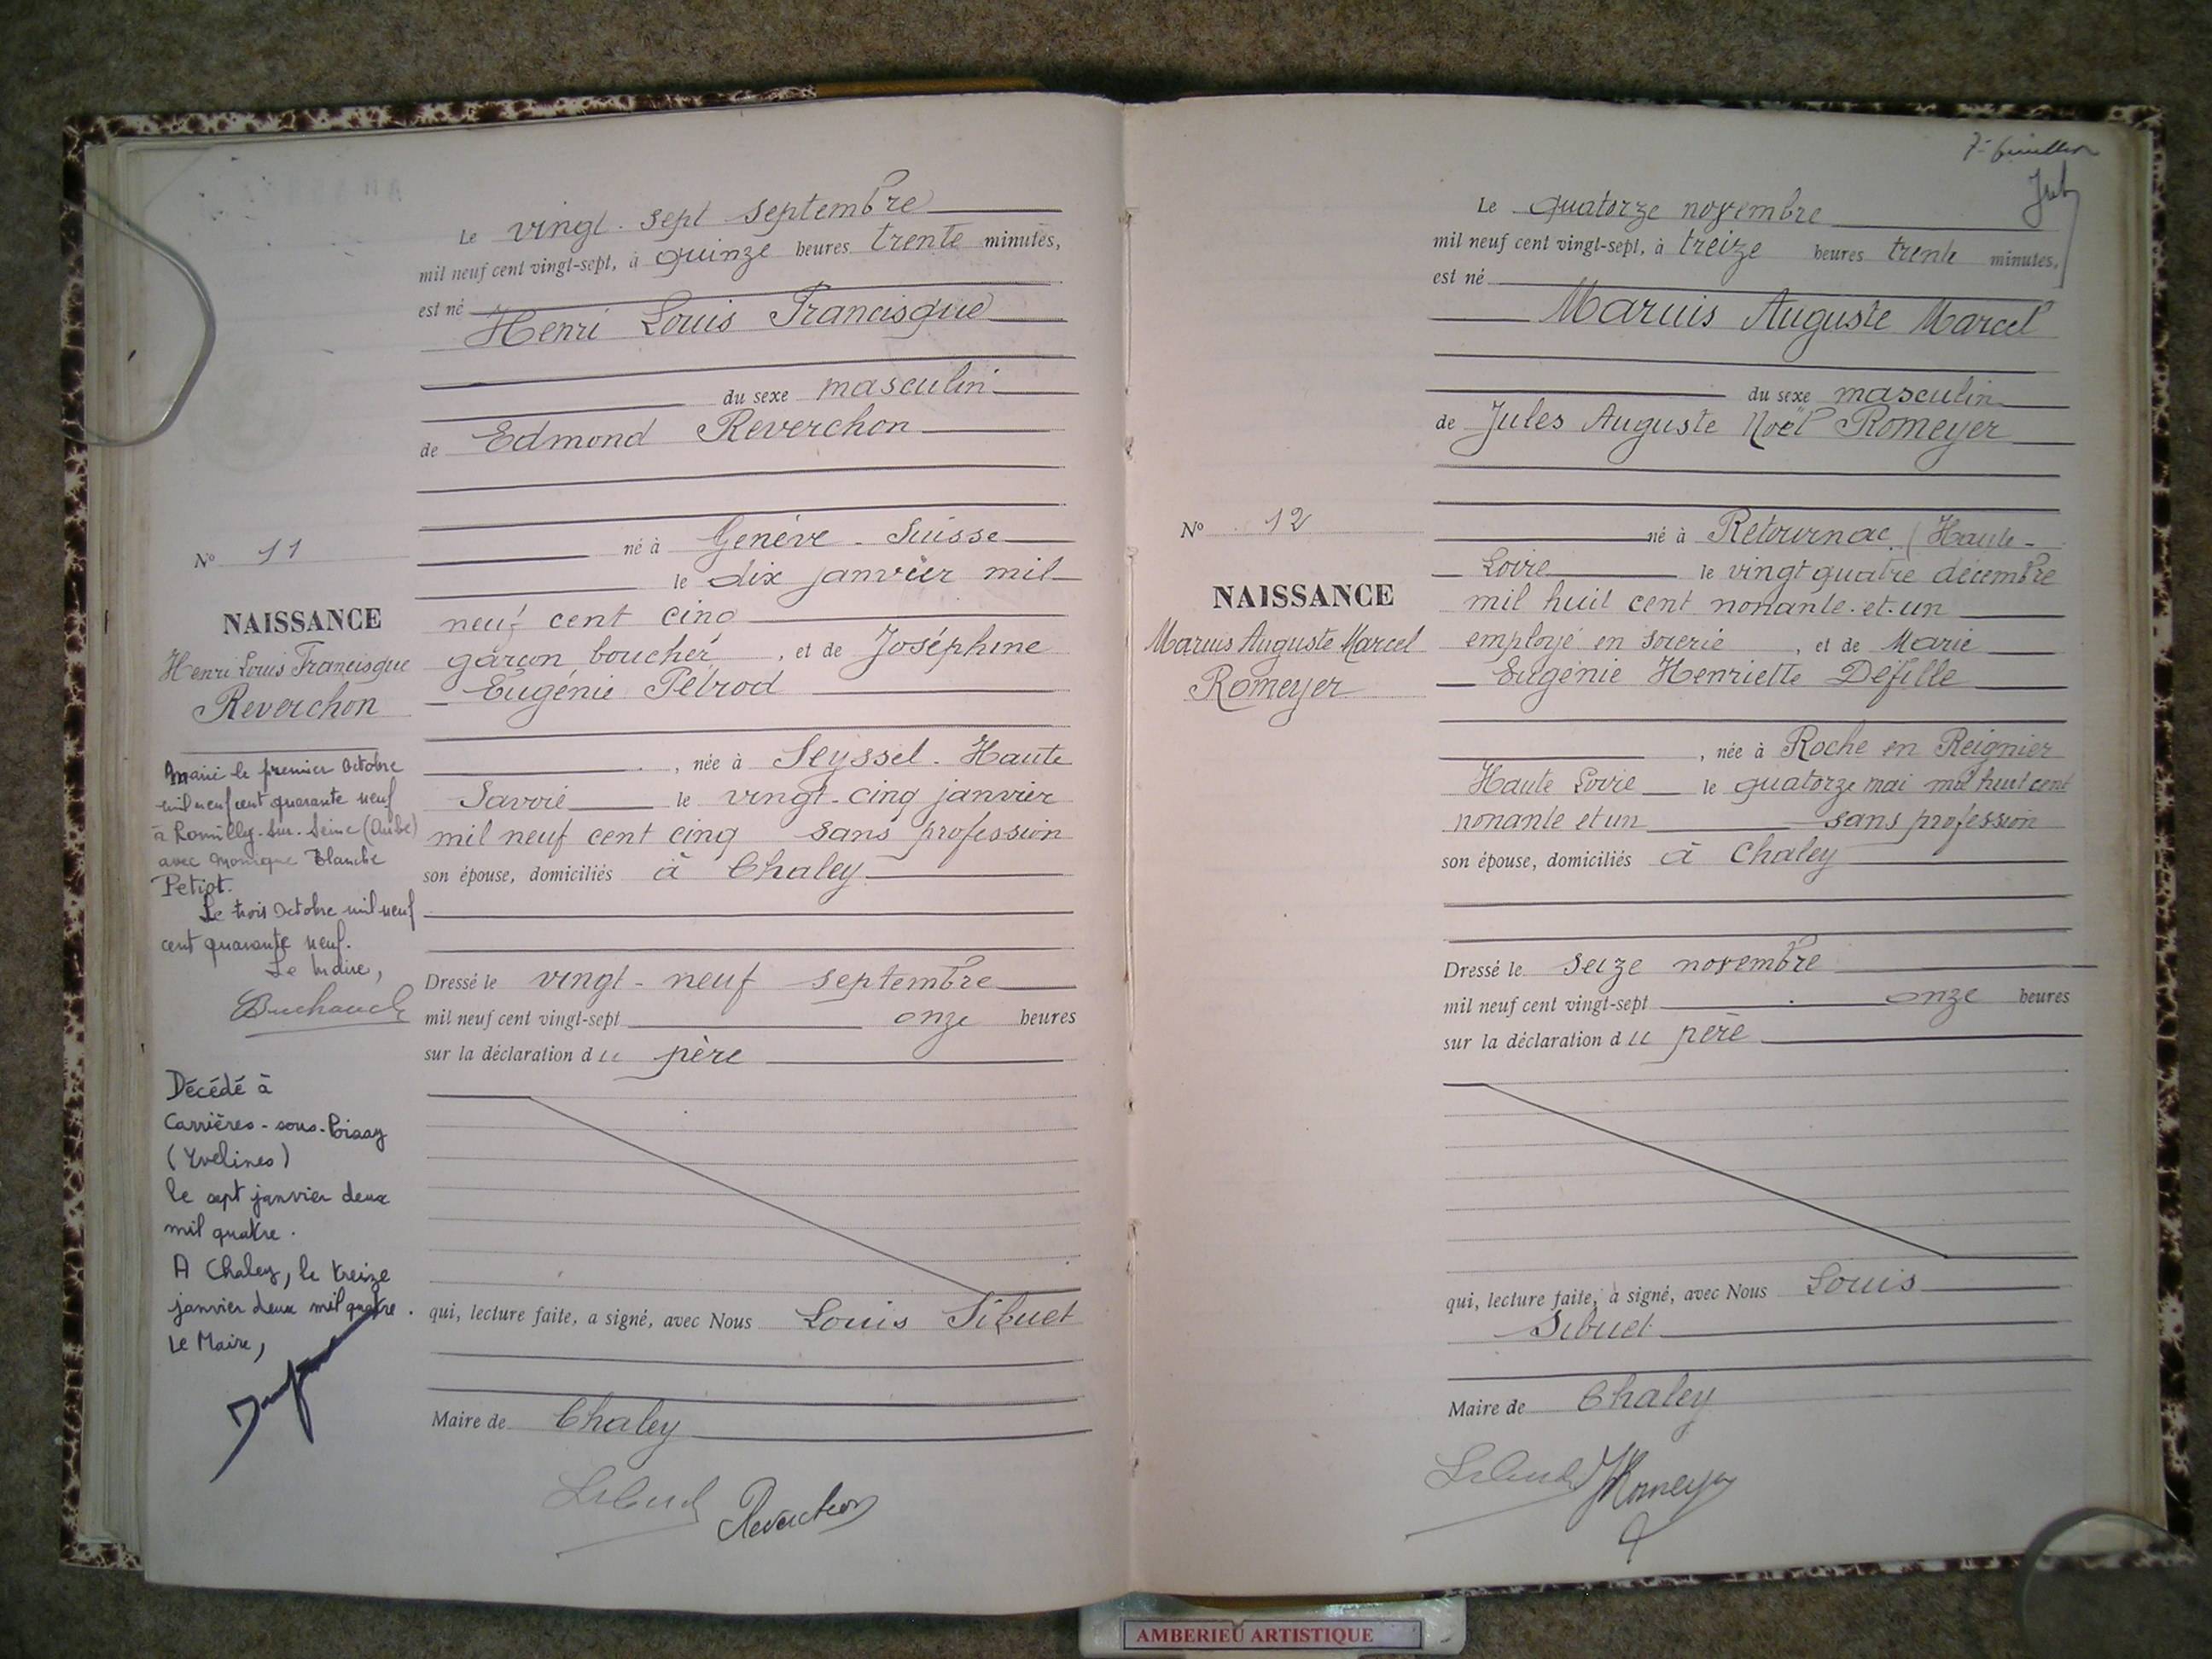 Le vingt-sept septembre
mil neuf cent vingt-sept, à quinze heures trente minutes,
est né
Henri Louis Francisque
du sexe masculin
de Edmond Reverchon
né à Genève - Suisse
le dix janvier mil
neuf cent cinq
garçon boucher, et de Joséphine
Eugénie Pétrod
, née à Seyssel - Haute
Savoie le vingt-cinq janvier
mil neuf cent cinq sans profession
son épouse, domiciliés à Chaley
Dressé le vingt-neuf septembre
mil neuf cent vingt-sept onze heures
sur la déclaration du père
qui, lecture faite, a signé, avec Nous Louis Sibuet
Maire de Chaley
Sibuet Reverchon
N° 11
NAISSANCE
Henri Louis Francisque
Reverchon
Marié le premier Octobre
mil neuf cent quarante neuf
à Romilly-sur-Seine (Aube)
avec Monique Blanche
Petiot.
Le trois Octobre mil neuf
cent quarante neuf.
Le Maire,
Décédé à
Carrières-sous-Poissy
(Yvelines)
le sept janvier deux
mil quatre.
A Chaley, le treize
janvier deux mil quatre.
Le Maire,
7e feuillet
Le quatorze novembre
mil neuf cent vingt-sept, à treize heures trente minutes,
est né
Maruis Auguste Marcel
du sexe masculin
de Jules Auguste Noël Romeyer
né à Retournac (Haute-
Loire le vingt quatre décembre
mil huit cent nonante-et-un
employé en soierie, et de Marie
Eugénie Henriette Défille
, née à Roche en Reignier
Haute Loire le quatorze mai mil huit cent
nonante et un sans profession
son épouse, domiciliés à Chaley
Dressé le seize novembre
mil neuf cent vingt-sept onze heures
sur la déclaration du père
qui, lecture faite, a signé, avec Nous Louis
Sibuet
Maire de Chaley
Sibuet JRomeyer
N° 12
NAISSANCE
Maruis Auguste Marcel
Romeyer
AMBERIEU ARTISTIQUE